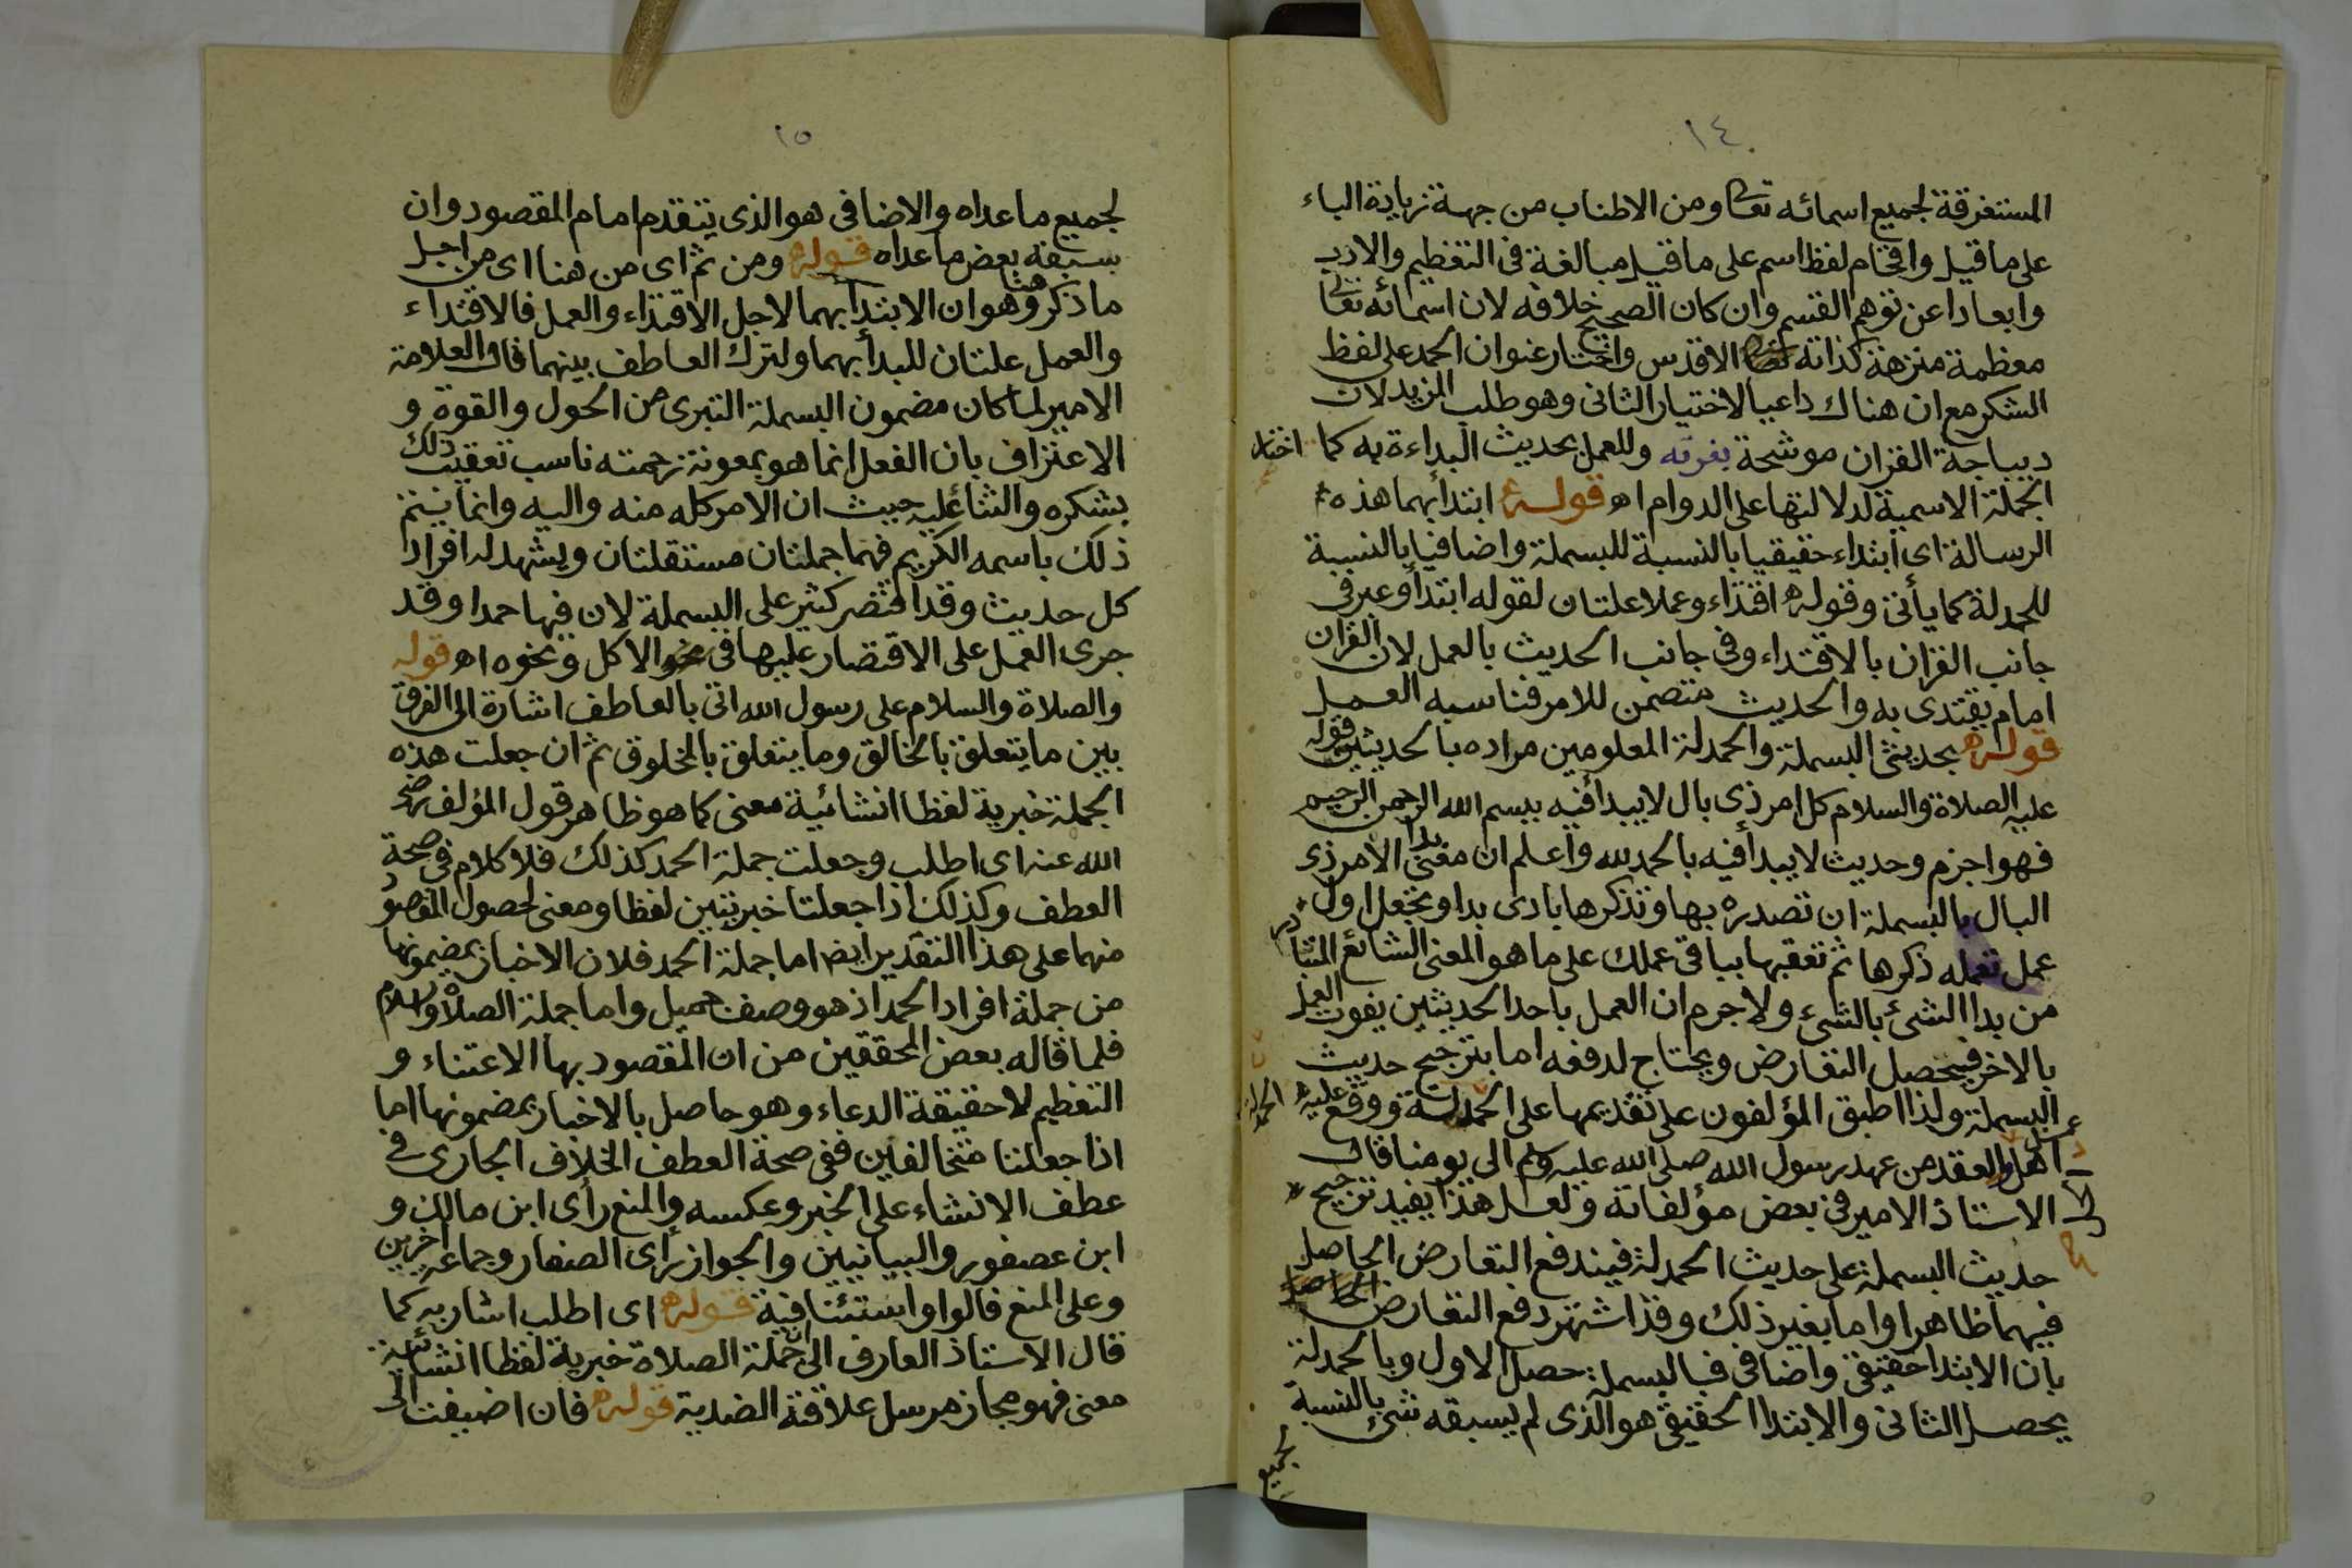 ١٤
المستغرقة لجميع اسمائه تعالى ومن الاطناب من جهة زيادة الباء
على ما قيل واقحام لفظ اسم على ما قيل مبالغة فى التعظيم والادب
وابعادا عن توهم القسم وان كان الصحيح خلافه لان اسمائه تعالى
معظمة منزهة كذاته الاقدس واختار عنوان الحمد على لفظ
الشكر مع ان هناك داعيا لاختيار الثانى وهو طلب المزيد لان
ديباجة القران موشحة بغرته وللعمل بحديث البداءة به كما اختار
الجملة الاسمية لدلالتها على الدوام اه قوله ابتدأ بهما هذه
الرسالة اى ابتداء حقيقيا بالنسبة للبسملة واضافيا بالنسبة
للحمدلة كما يأتى وقوله اقتداء وعملا علتان لقوله ابتدأ وعبر فى
جانب القران بالاقتداء وفى جانب الحديث بالعمل لان القران
امام يقتدى به والحديث متضمن للامر فناسبه العمل
قوله بحديثى البسملة والحمدلة المعلومين مراده بالحديثين قوله
عليه الصلاة والسلام كل امر ذى بال لا يبدأ فيه ببسم الله الرحمن الرحيم
فهو اجزم وحديث لا يبدأ فيه بالحمد لله واعلم ان معنى بدا الامر ذى
البال بالبسملة ان تصدره بها وتذكرها بادى بدا وتجعل اول
عمل تعمله ذكرها ثم تعقبها بباقى عملك على ما هو المعنى الشائع المتبادر
من بدا الشئ بالشئ ولا جرم ان العمل باحد الحديثين يفوت العمل
بالاخر فيحصل التعارض ويحتاج لدفعه اما بترجيح حديث
البسملة ولذا اطبق المؤلفون على تقديمها على الحمدلة ووقع عليه
اهل والعقد من عهد رسول الله صلى الله عليه وسلم الى يومنا قال
الاستاذ الامير فى بعض مؤلفاته ولعل هذا يفيد ترجيح
حديث البسملة على حديث الحمدلة فيندفع التعارض الحاصل
فيهما ظاهرا واما بغير ذلك وقد اشتهر دفع التعارض
بان الابتدا حقيقى واضافى فبالبسملة حصل الاول وبالحمدلة
يحصل الثانى والابتدا الحقيقى هو الذى لم يسبقه شئ بالنسبة
لجميع
١٥
لجميع ما عداه والاضافى هو الذى يتقدم امام المقصود وان
سبقه بعض ما عداه قوله ومن ثم اى من هنا اى من اجل
ما ذكر هنا وهو ان الابتدأ بهما لاجل الاقتداء والعمل فالاقتداء
والعمل علتان للبدأ بهما ولترك العاطف بينهما قال العلامة
الامير لما كان مضمون البسملة التبرى من الحول والقوة و
الاعتراف بان الفعل انما هو بمعونة رحمته ناسب تعقيب ذلك
بشكره والثنا عليه حيث ان الامر كله منه واليه وانما يتم
ذلك باسمه الكريم فهما جملتان مستقلتان ويشهد له افراد
كل حديث وقد اقتصر كثير على البسملة لان فيها حمدا وقد
جرى العمل على الاقتصار عليها فى نحو الاكل ونحوه اه قوله
والصلاة والسلام على رسول الله اتى بالعاطف اشارة الى الفرق
بين ما يتعلق بالخالق وما يتعلق بالمخلوق ثم ان جعلت هذه
الجملة خبرية لفظا انشائية معنى كما هو ظاهر قول المؤلف رضى
الله عنه اى اطلب وجعلت جملة الحمد كذلك فلا كلام فى صحة
العطف وكذلك اذا جعلتا خبريتين لفظا ومعنى لحصول المقصود
منهما على هذا التقدير ايضا اما جملة الحمد فلان الاخبار بمضمونها
من جملة افراد الحمد اذ هو وصف جميل واما جملة الصلاة والسلام
فلما قاله بعض المحققين من ان المقصود بها الاعتناء و
التعظيم لا حقيقة الدعاء وهو حاصل بالاخبار بمضمونها اما
اذا جعلتا متخالفين ففى صحة العطف الخلاف الجارى فى
عطف الانشاء على الخبر وعكسه والمنع رأى ابن مالك و
ابن عصفور والبيانيين والجواز رأى الصفار وجماعة اخرين
وعلى المنع قالوا واستئنافية قوله اى اطلب اشار به كما
قال الاستاذ العارف الى ان جملة الصلاة خبرية لفظا انشائية
معنى فهو مجاز مرسل علاقته الضدية قوله فان اضيفت الى